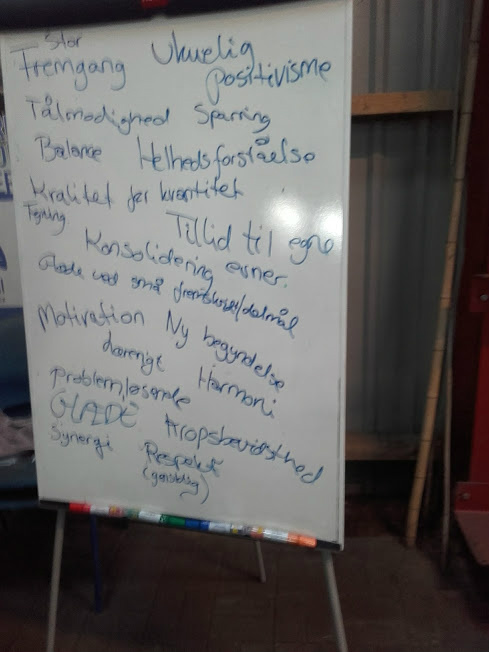 Stor
Fremgang
Ukuelig
positivisme
Tålmodighed Sparring
Balance Helhedsforståelse
Kvalitet før kvantitet
Tillid til egne
Konsolidering evner.
Glæde ved små fremskridt/delmål
Motivation Ny begyndelse
Harmoni
Problemløsende
GLÆDE Kropsbevidsthed
Synergi Respekt
(gensidig)